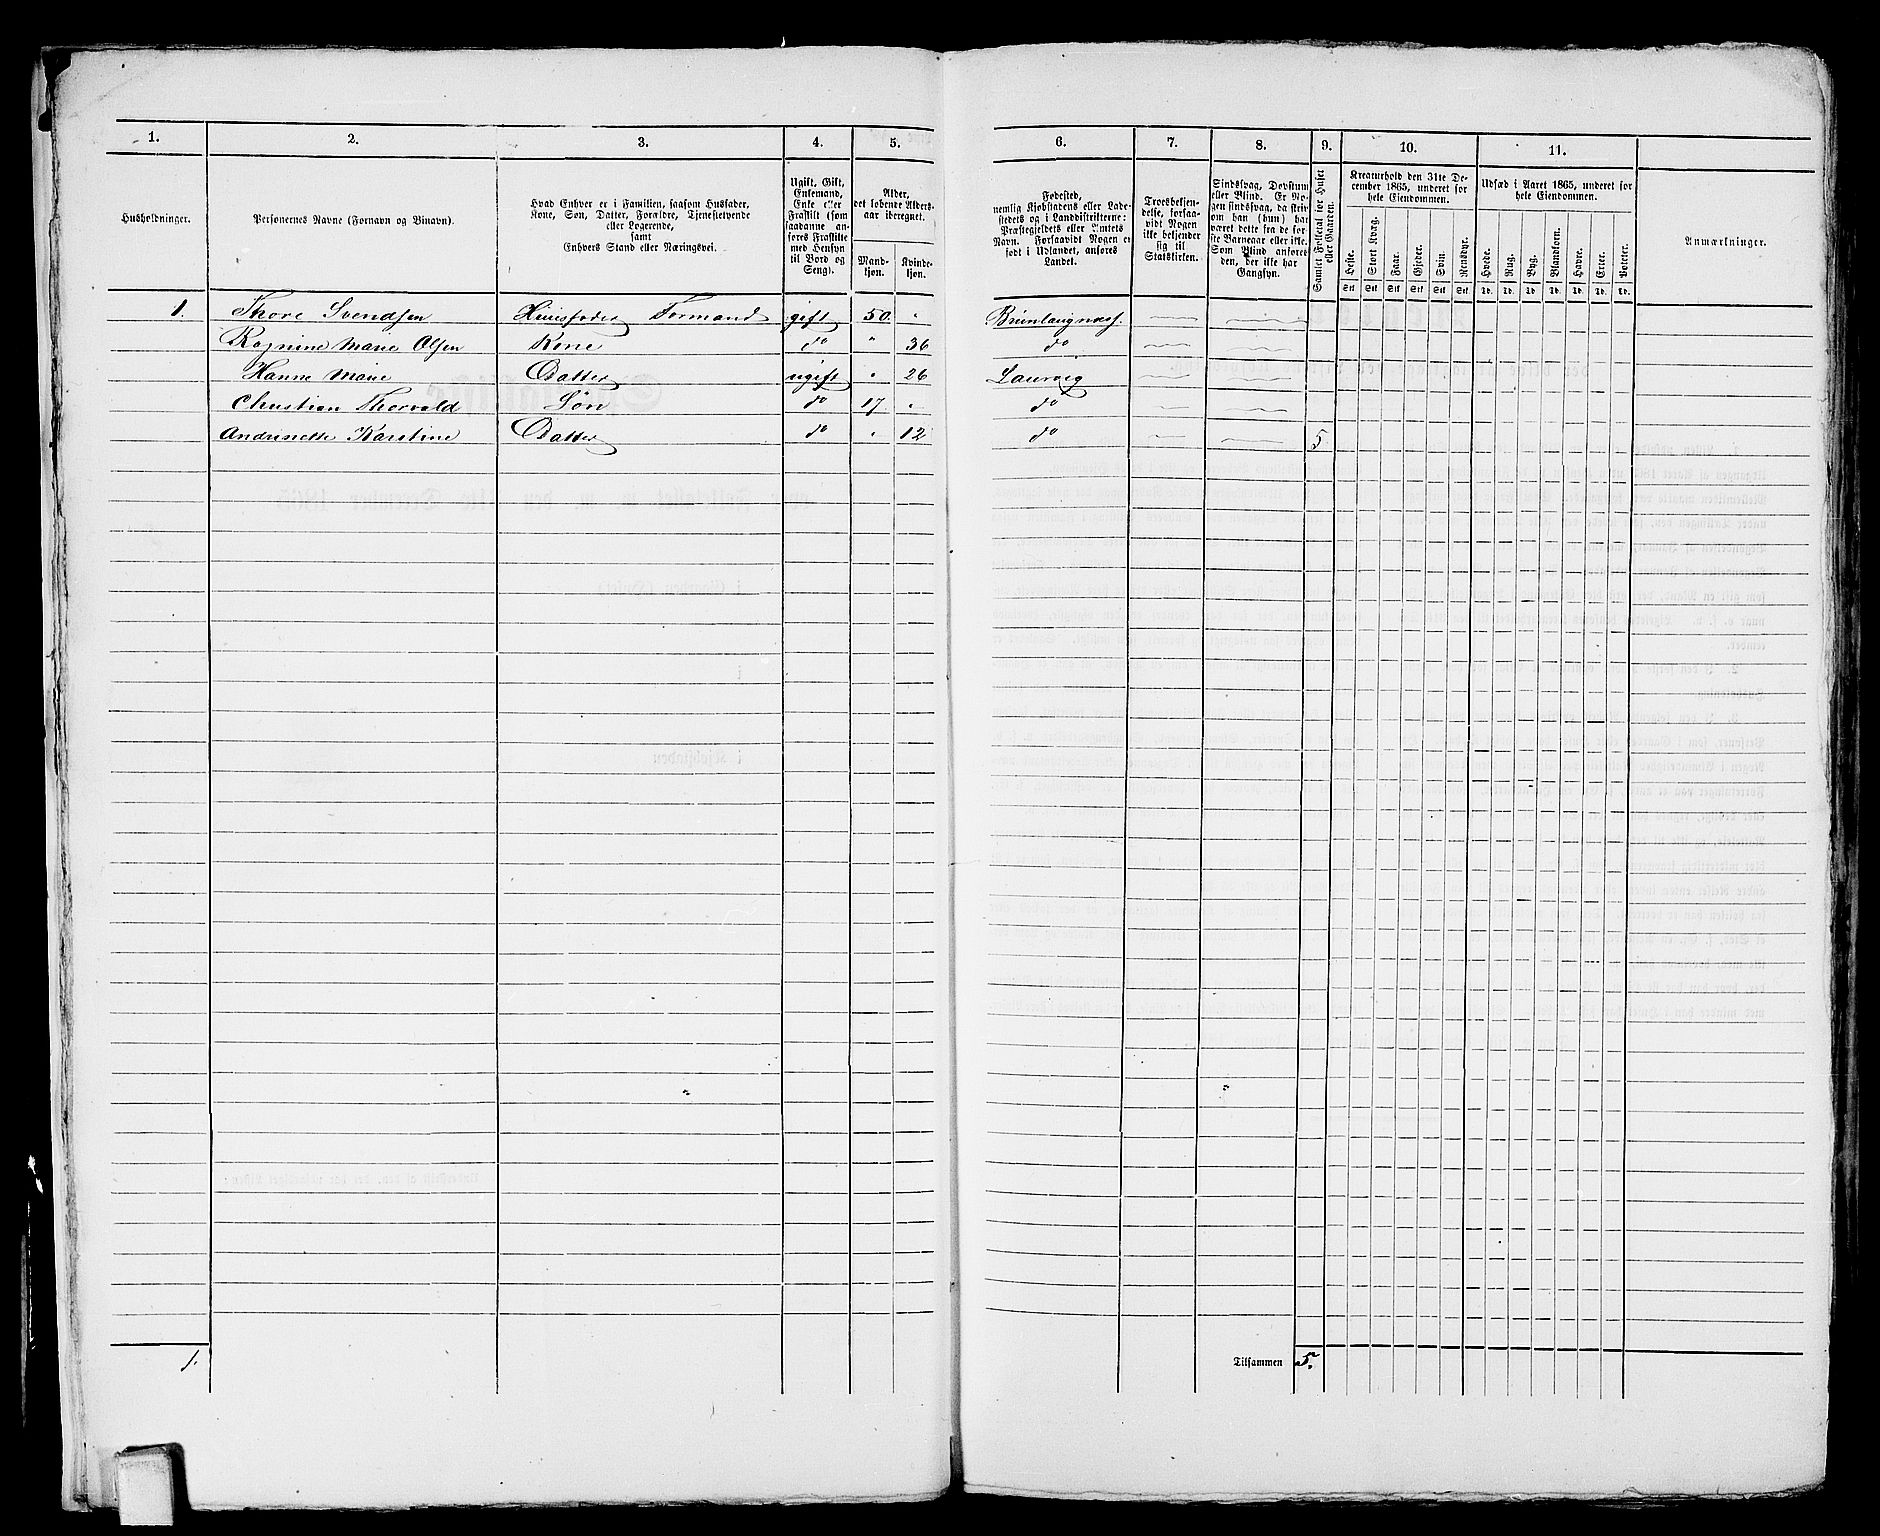 1. 2. 3. 4. 5. 6. 7. 8. 9. 10. 11.
Husholdninger.
Personernes Navne (Fornavn og Binavn).
Hvad Enhver er i Familien, saasom Husfader,
Kone, Søn, Datter, Forældre, Tjenestetyende
eller Logerende,
samt
Enhvers Stand eller Næringsvei.
Ugift, Gift,
Enkemand,
Enke eller
Fraskilt (som
saadanne an-
føres Fraskilte
med Hensyn
til Bord og
Seng).
Alder,
det løbende Alders-
aar iberegnet.
Mand-
kjøn.
Kvinde-
kjøn.
Fødested,
nemlig Kjøbstadens eller Lade-
stedets og i Landdistrikterne:
Præstegjeldets eller Amtets
Navn. Forsaavidt Nogen er
født i Udlandet, anføres
Landet.
Troesbekjen-
delse, forsaa-
vidt Nogen
ikke bekjender
sig til
Statskirken.
Sindssvag, Døvstum
eller Blind. Er No-
gen sindssvag, da skriv
om han (hun) har
været dette fra de før-
ste Barneaar eller ikke.
Som Blind anføres
den, der ikke har
Gangsyn.
Samlet Folketal for Huset
eller Gaarden.
Kreaturhold den 31te De-
cember 1865, underet for
hele Eiendommen.
Heste. Stort Kvæg. Faar. Gjeder. Svin. Rensdyr.
Stk Stk Stk Stk Stk Stk
Udsæd i Aaret 1865, underet for
hele Eiendommen.
Hvede. Rug. Byg. Blandkorn. Havre. Erter. Poteter.
Td. Td. Td Td. Td. Td. Td.
Anmærkninger.
1. Thore Svendsen Huusfader Formand gift 50 " Brunlaugnæss.
Ragnine Marie Olsen Kone do " 36 do
Hanne Marie Datter ugift " 26 Laurvig
Christian Thorvald Søn do 17. " do
Andrinette Karstine Datter do " 12 do 5
1. Tilsammen 5.